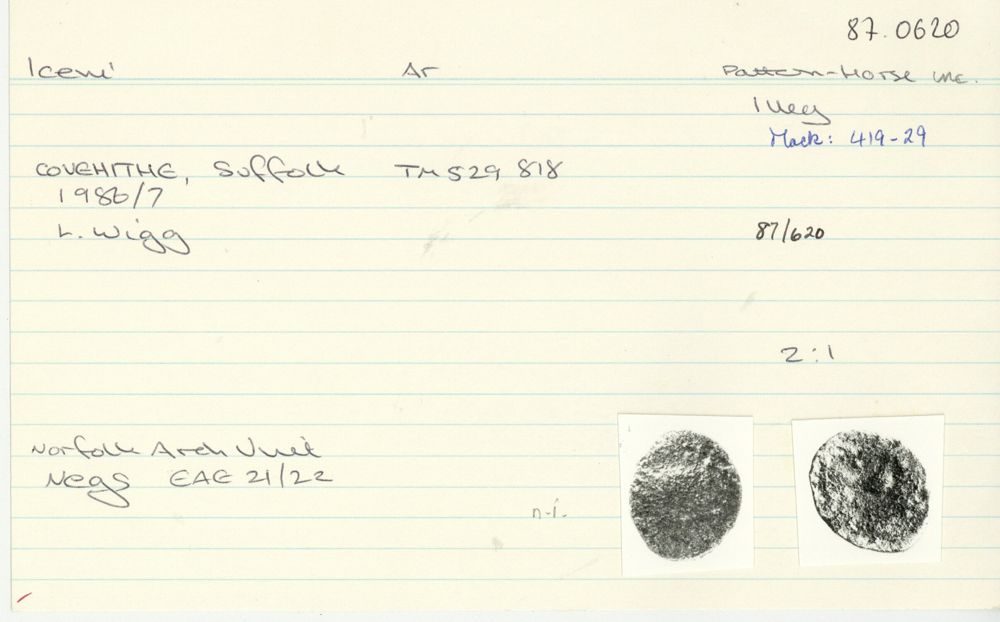 87.0620
Iceni Ar Pattern-Horse unc.
Illeg
Mack: 419-29
COVEHITHE, Suffolk TM 529 818
1986/7
L. Wigg 87/620
2:1
Norfolk Arch Unit
Negs EAE 21/22
n.i.